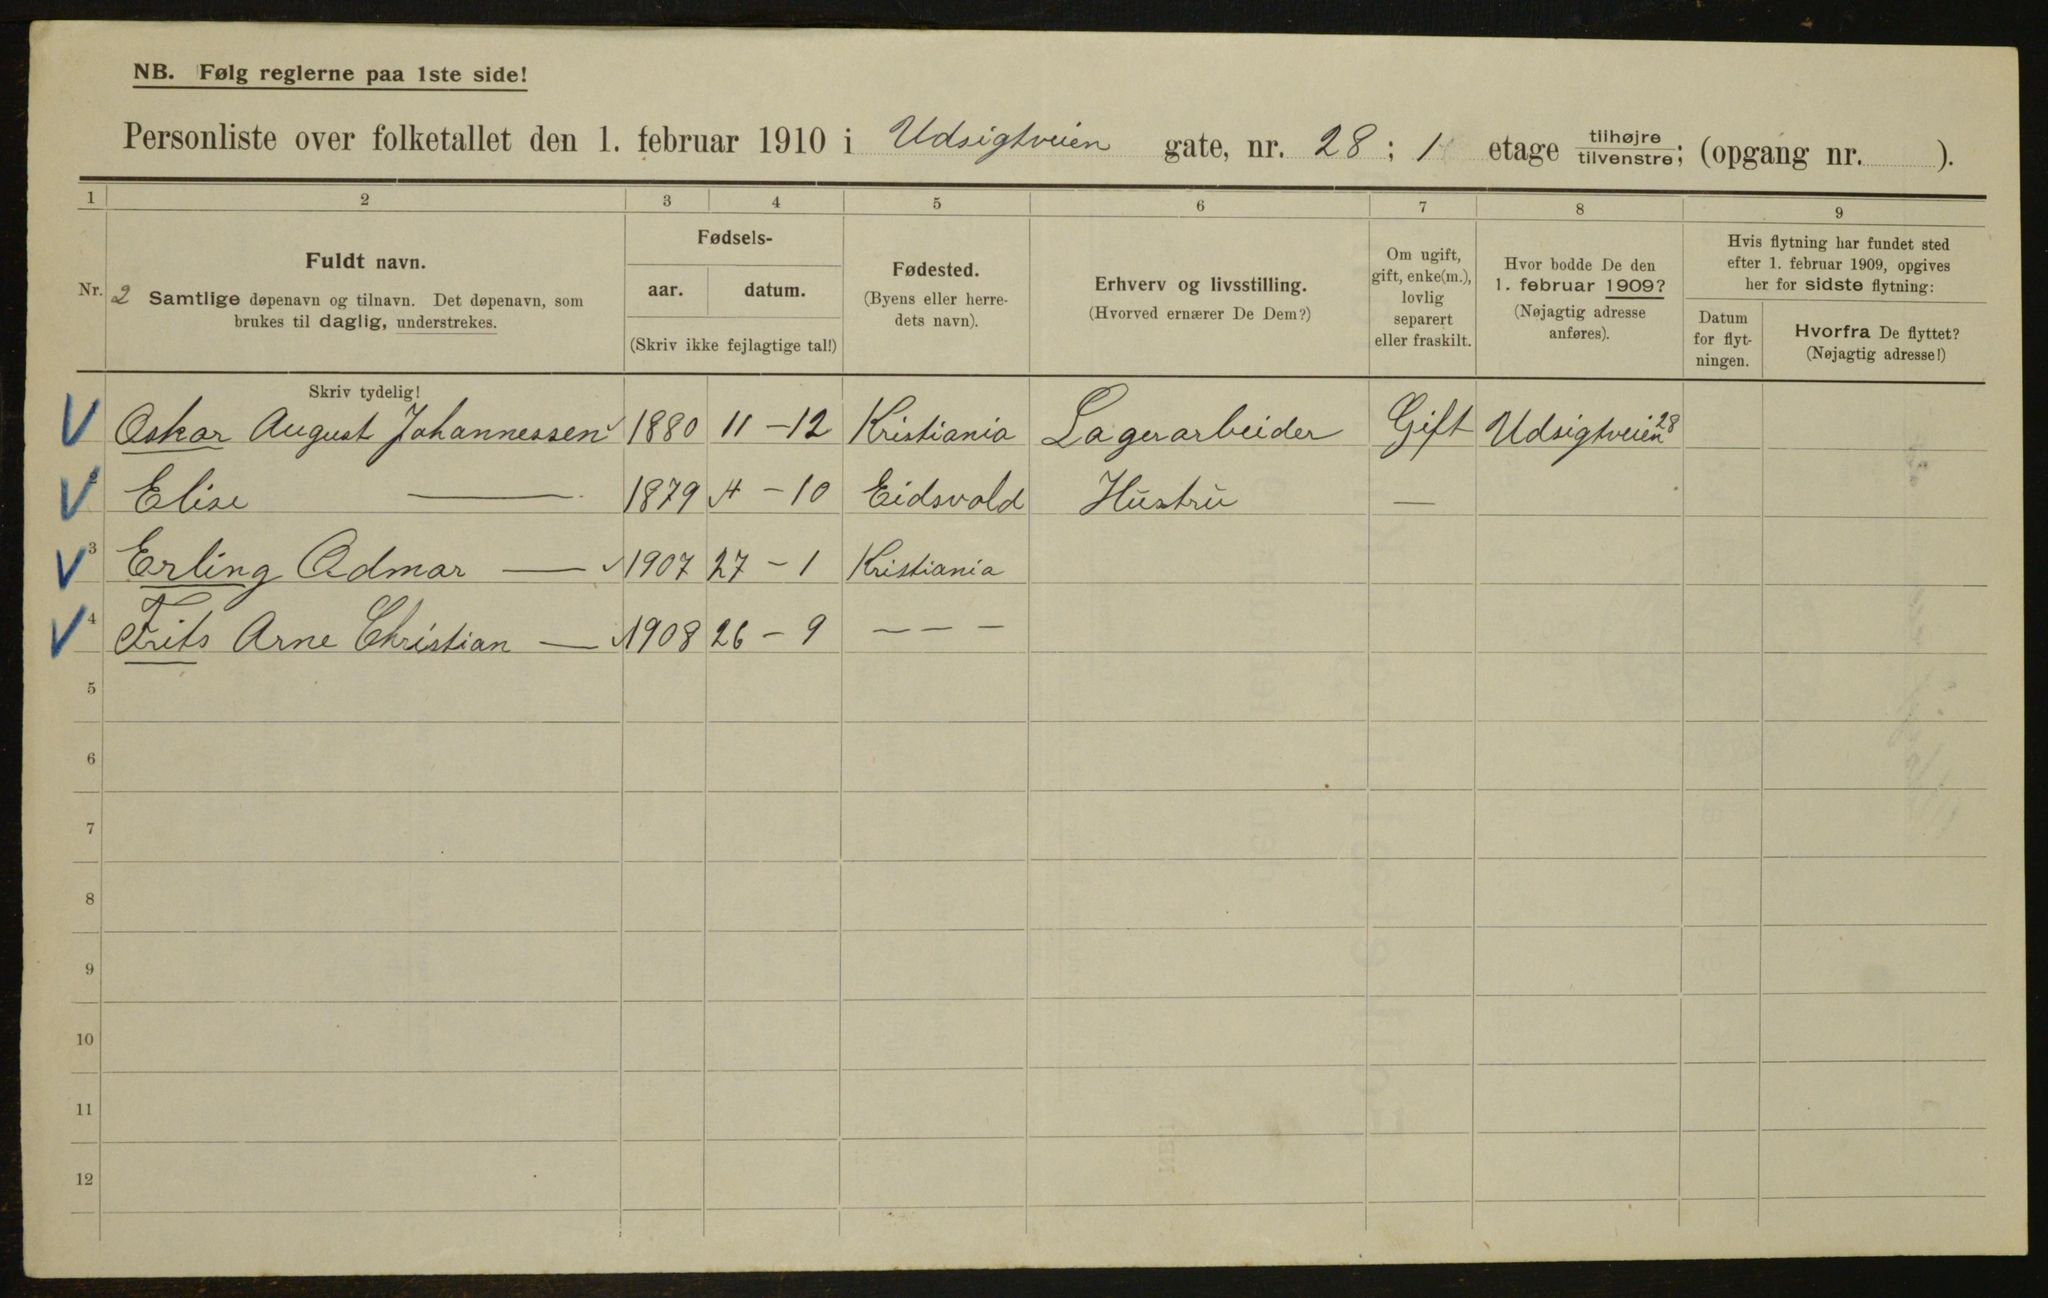 NB. Følg reglerne paa 1ste side!
Personliste over folketallet den 1. februar 1910 i Udsigtveien gate, nr. 28; 1 etage tilhøjre/tilvenstre; (opgang nr. ).
1 2 3 4 5 6 7 8 9
Nr. 2
Fuldt navn.
Samtlige døpenavn og tilnavn. Det døpenavn, som
brukes til daglig, understrekes.
Fødsels-
aar. datum.
(Skriv ikke fejlagtige tal!)
Fødested.
(Byens eller herre-
dets navn).
Erhverv og livsstilling.
(Hvorved ernærer De Dem?)
Om ugift,
gift, enke(m.),
lovlig
separert
eller fraskilt.
Hvor bodde De den
1. februar 1909?
(Nøjagtig adresse
anføres).
Hvis flytning har fundet sted
efter 1. februar 1909, opgives
her for sidste flytning:
Datum
for flyt-
ningen.
Hvorfra De flyttet?
(Nøjagtig adresse!)
Skriv tydelig!
Oskar August Johannessen 1880 11-12 Kristiania Lagerarbeider Gift Udsigtveien 28
Elise — 1879 4-10 Eidsvold Hustru —
3 Erling Odmar — 1907 27-1 Kristiania
4 Frits Arne Christian — 1908 26-9 - - -
5
6
7
8
9
10
11
12